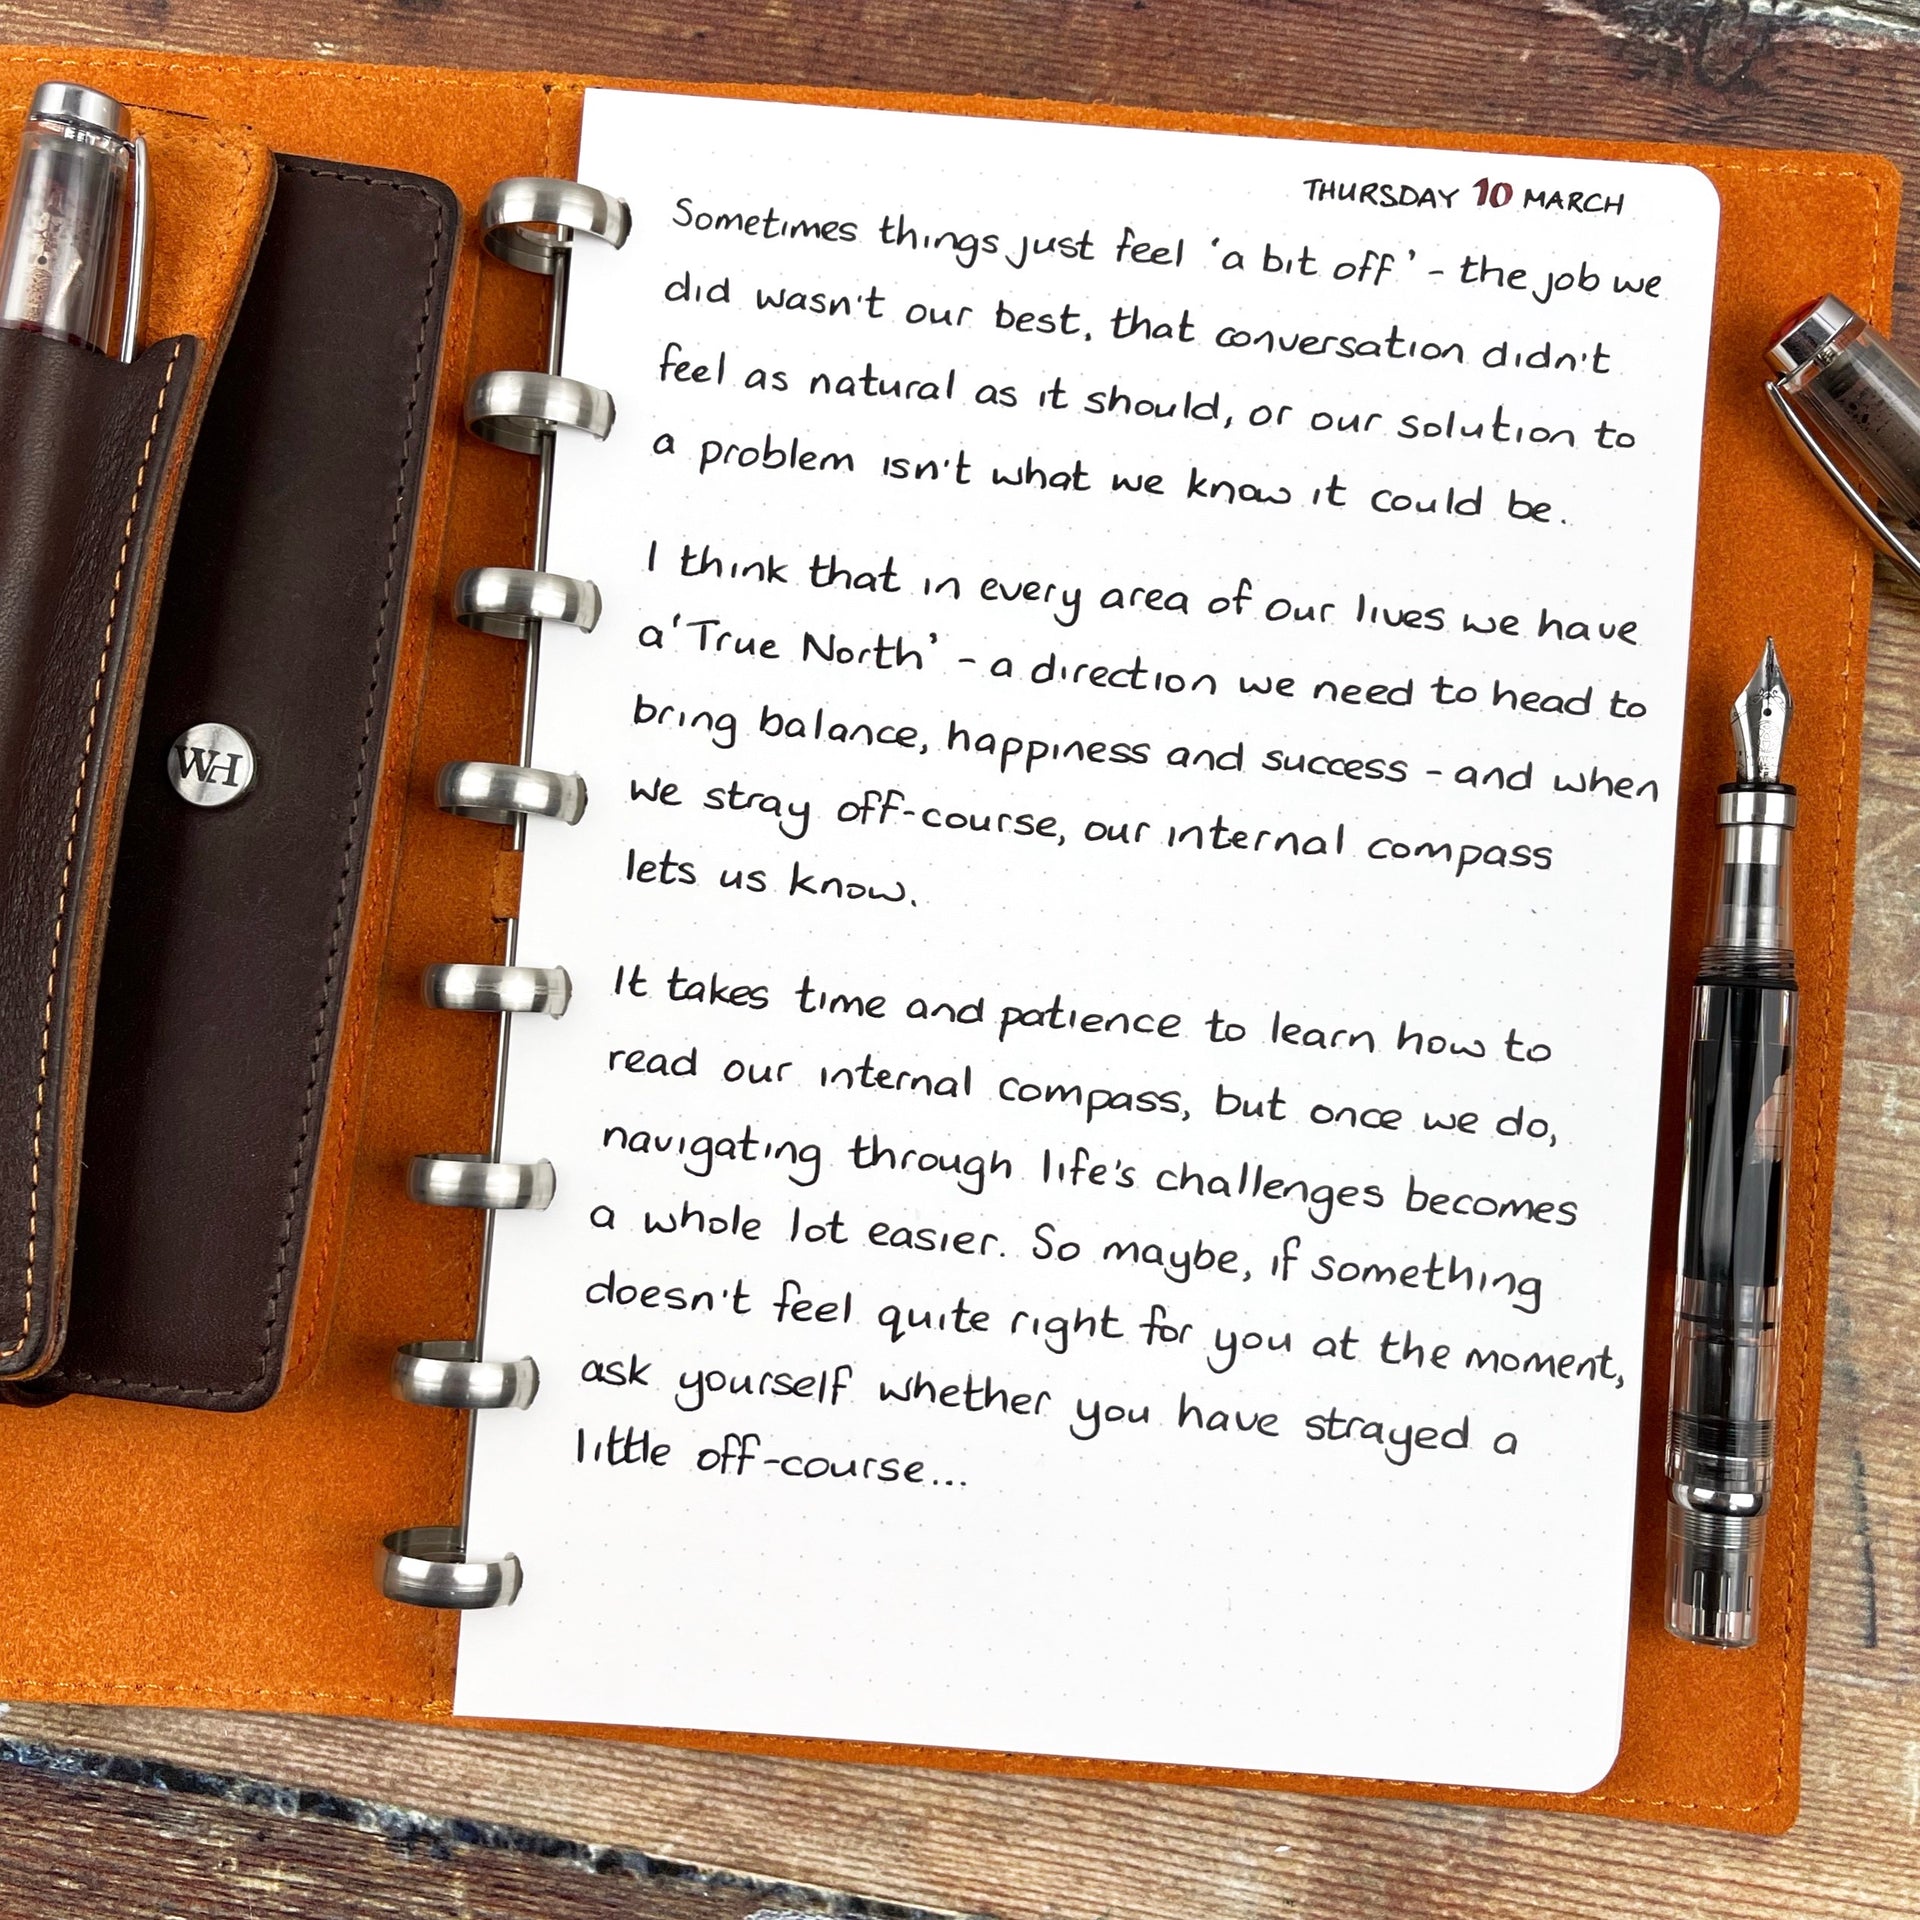 THURSDAY 10 MARCH
Sometimes things just feel 'a bit off' - the job we
did wasn't our best, that conversation didn't
feel as natural as it should, or our solution to
a problem isn't what we know it could be.
I think that in every area of our lives we have
a 'True North' - a direction we need to head to
bring balance, happiness and success - and when
we stray off-course, our internal compass
lets us know.
It takes time and patience to learn how to
read our internal compass, but once we do,
navigating through life's challenges becomes
a whole lot easier. So maybe, if something
doesn't feel quite right for you at the moment,
ask yourself whether you have strayed a
little off-course...
WH